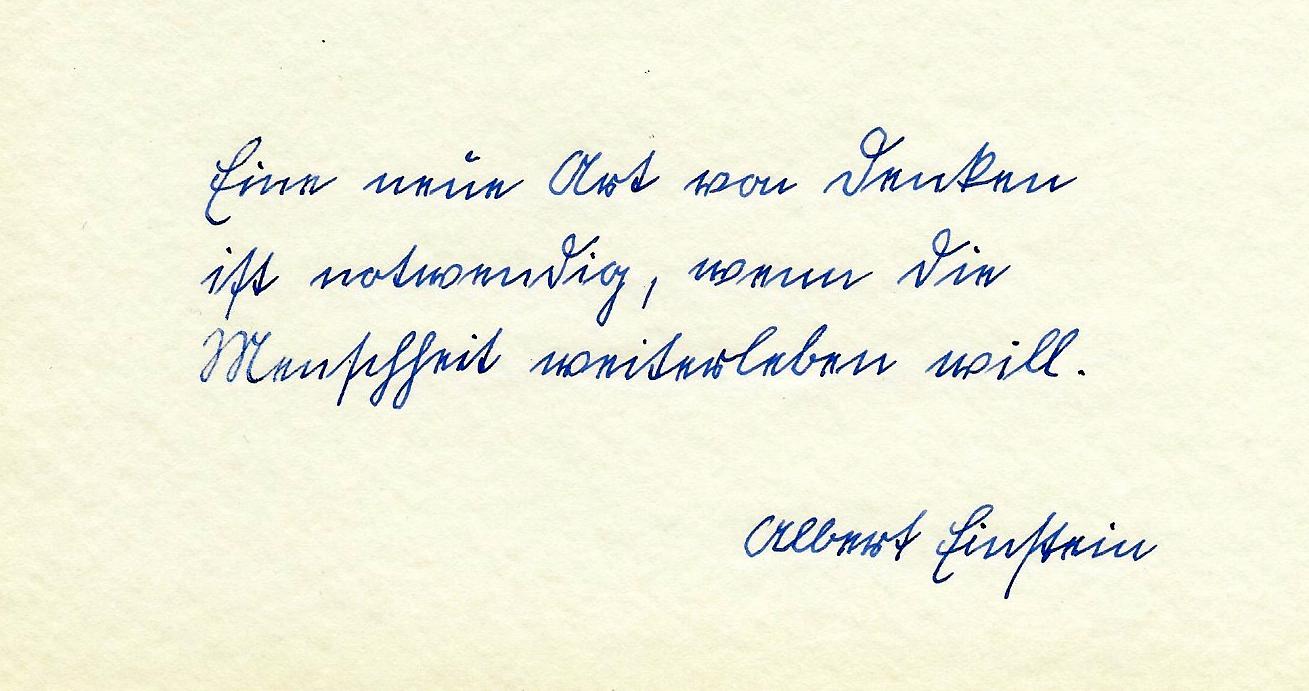 Eine neue Art von Denken
ist notwendig, wenn die
Menschheit weiterleben will.
Albert Einstein